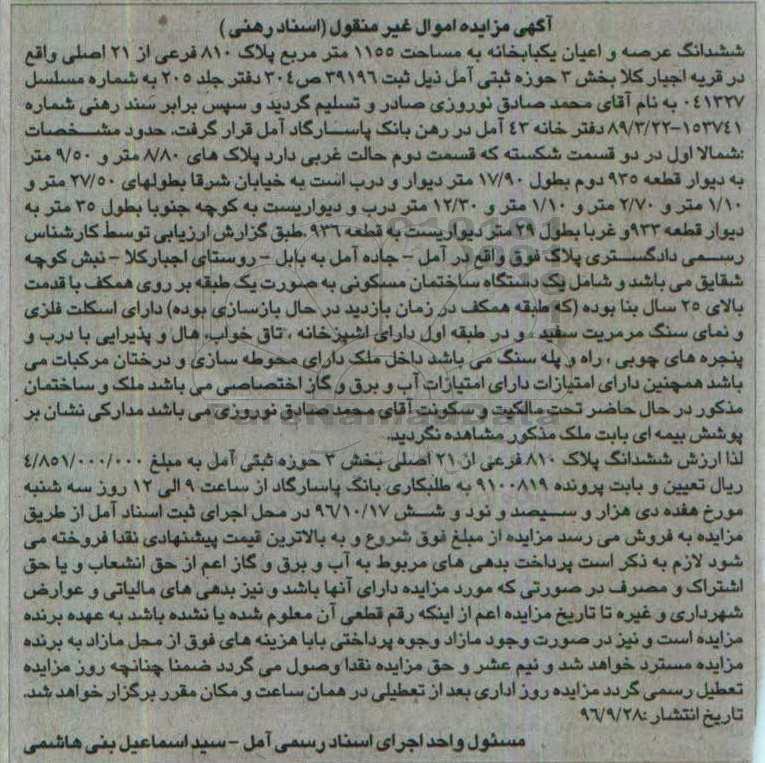 آگهی مزایده اموال غیر منقول (اسناد رهنی)
ششدانگ عرصه و اعیان یکبابخانه به مساحت ۱۱۵۵ متر مربع پلاک ۸۱۰ فرعی از ۲۱ اصلی واقع
در قریه اجبار کلا بخش ۳ حوزه ثبتی آمل ذیل ثبت ۳۹۱۹۶ ص ۳۰۴ دفتر جلد ۲۰۵ به شماره مسلسل
۰۴۱۳۲۷ به نام آقای محمد صادق نوروزی صادر و تسلیم گردید و سپس برابر سند رهنی شماره
۱۵۳۷۴۱-۸۹/۳/۲۲ دفتر خانه ۴۳ آمل در رهن بانک پاسارگاد آمل قرار گرفت. حدود مشخصات
:شمالا اول در دو قسمت شکسته که قسمت دوم حالت غربی دارد پلاک های ۸/۸۰ متر و ۹/۵۰ متر
به دیوار قطعه ۹۳۵ دوم بطول ۱۷/۹۰ متر دیوار و درب است به خیابان شرقا بطولهای ۲۷/۵۰ متر و
۱/۱۰ متر و ۲/۷۰ متر و ۱/۱۰ متر و ۱۲/۳۰ متر درب و دیواریست به کوچه جنوبا بطول ۳۵ متر به
دیوار قطعه ۹۳۳ و غربا بطول ۲۹ متر دیواریست به قطعه ۹۳۶ .طبق گزارش ارزیابی توسط کارشناس
رسمی دادگستری پلاک فوق واقع در آمل - جاده آمل به بابل - روستای اجبارکلا - نبش کوچه
شقایق می باشد و شامل یک دستگاه ساختمان مسکونی به صورت یک طبقه بر روی همکف با قدمت
بالای ۲۵ سال بنا بوده (که طبقه همکف در زمان بازدید در حال بازسازی بوده) دارای اسکلت فلزی
و نمای سنگ مرمریت سفید ، و در طبقه اول دارای اشپزخانه ، تاق خواب، هال و پذیرایی با درب و
پنجره های چوبی ، راه و پله سنگ می باشد داخل ملک دارای محوطه سازی و درختان مرکبات می
باشد همچنین دارای امتیازات دارای امتیازات آب و برق و گاز اختصاصی می باشد ملک و ساختمان
مذکور در حال حاضر تحت مالکیت و سکونت آقای محمد صادق نوروزی می باشد مدارکی نشان بر
پوشش بیمه ای بابت ملک مذکور مشاهده نگردید.
لذا ارزش ششدانگ پلاک ۸۱۰ فرعی از ۲۱ اصلی بخش ۳ حوزه ثبتی آمل به مبلغ ۴/۸۵۱/۰۰۰/۰۰۰
ریال تعیین و بابت پرونده ۹۱۰۰۸۱۹ به طلبکاری بانک پاسارگاد از ساعت ۹ الی ۱۲ روز سه شنبه
مورخ هفده دی هزار و سیصد و نود و شش ۹۶/۱۰/۱۷ در محل اجرای ثبت اسناد آمل از طریق
مزایده به فروش می رسد مزایده از مبلغ فوق شروع و به بالاترین قیمت پیشنهادی نقدا فروخته می
شود لازم به ذکر است پرداخت بدهی های مربوط به آب و برق و گاز اعم از حق انشعاب و یا حق
اشتراک و مصرف در صورتی که مورد مزایده دارای آنها باشد و نیز بدهی های مالیاتی و عوارض
شهرداری و غیره تا تاریخ مزایده اعم از اینکه رقم قطعی آن معلوم شده یا نشده باشد به عهده برنده
مزایده است و نیز در صورت وجود مازاد وجوه پرداختی بابا هزینه های فوق از محل مازاد به برنده
مزایده مسترد خواهد شد و نیم عشر و حق مزایده نقدا وصول می گردد ضمنا چنانچه روز مزایده
تعطیل رسمی گردد مزایده روز اداری بعد از تعطیلی در همان ساعت و مکان مقرر برگزار خواهد شد.
تاریخ انتشار :۹۶/۹/۲۸
مسئول واحد اجرای اسناد رسمی آمل - سید اسماعیل بنی هاشمی